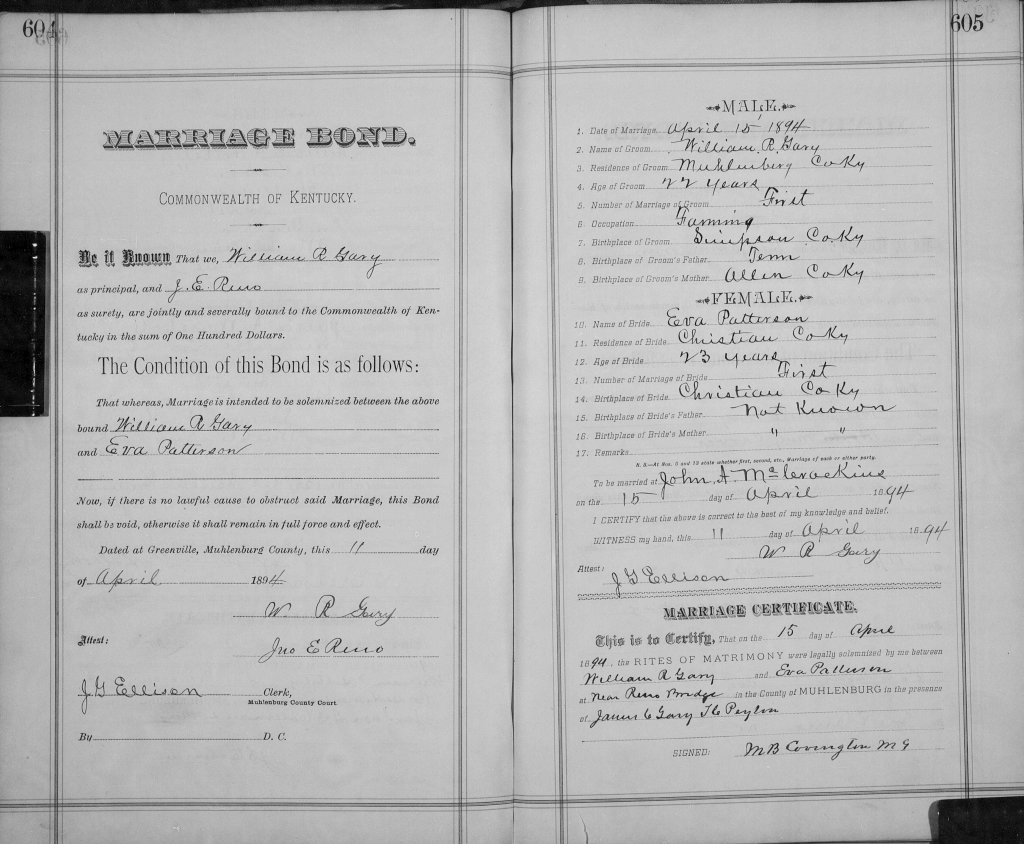 604
MARRIAGE BOND.
COMMONWEALTH OF KENTUCKY.
Be it Known That we, William R Gary
as principal, and J. E. Reno
as surety, are jointly and severally bound to the Commonwealth of Ken-
tucky in the sum of One Hundred Dollars.
The Condition of this Bond is as follows:
That whereas, Marriage is intended to be solemnized between the above
bound William R Gary
and Eva Patterson
Now, if there is no lawful cause to obstruct said Marriage, this Bond
shall be void, otherwise it shall remain in full force and effect.
Dated at Greenville, Muhlenburg County, this 11 day
of April 1894
W. R Gary
Attest:
Jno E Reno
J G Ellison Clerk,
Muhlenburg County Court.
By D. C.
605
MALE.
1. Date of Marriage April 15 1894
2. Name of Groom William R. Gary
3. Residence of Groom Muhlenberg Co Ky
4. Age of Groom 22 years
5. Number of Marriage of Groom First
6. Occupation Farming
7. Birthplace of Groom Simpson Co. Ky
8. Birthplace of Groom's Father Tenn
9. Birthplace of Groom's Mother Allen Co Ky
FEMALE.
10. Name of Bride Eva Patterson
11. Residence of Bride Christian Co Ky
12. Age of Bride 23 years
13. Number of Marriage of Bride First
14. Birthplace of Bride Christian Co Ky
15. Birthplace of Bride's Father Not Known
16. Birthplace of Bride's Mother " "
17. Remarks
N. B.—At Nos. 5 and 13 state whether first, second, etc., Marriage of each or either party.
To be married at John A. McCrackins
on the 15 day of April 1894
I CERTIFY that the above is correct to the best of my knowledge and belief.
WITNESS my hand, this 11 day of April 1894
W R Gary
Attest:
J G Ellison
MARRIAGE CERTIFICATE.
This is to Certify, That on the 15 day of April
1894, the RITES OF MATRIMONY were legally solemnized by me between
William R Gary and Eva Patterson
at Near Reno Bridge in the County of MUHLENBURG in the presence
of James C Gary Peyton
SIGNED: M B Covington M G